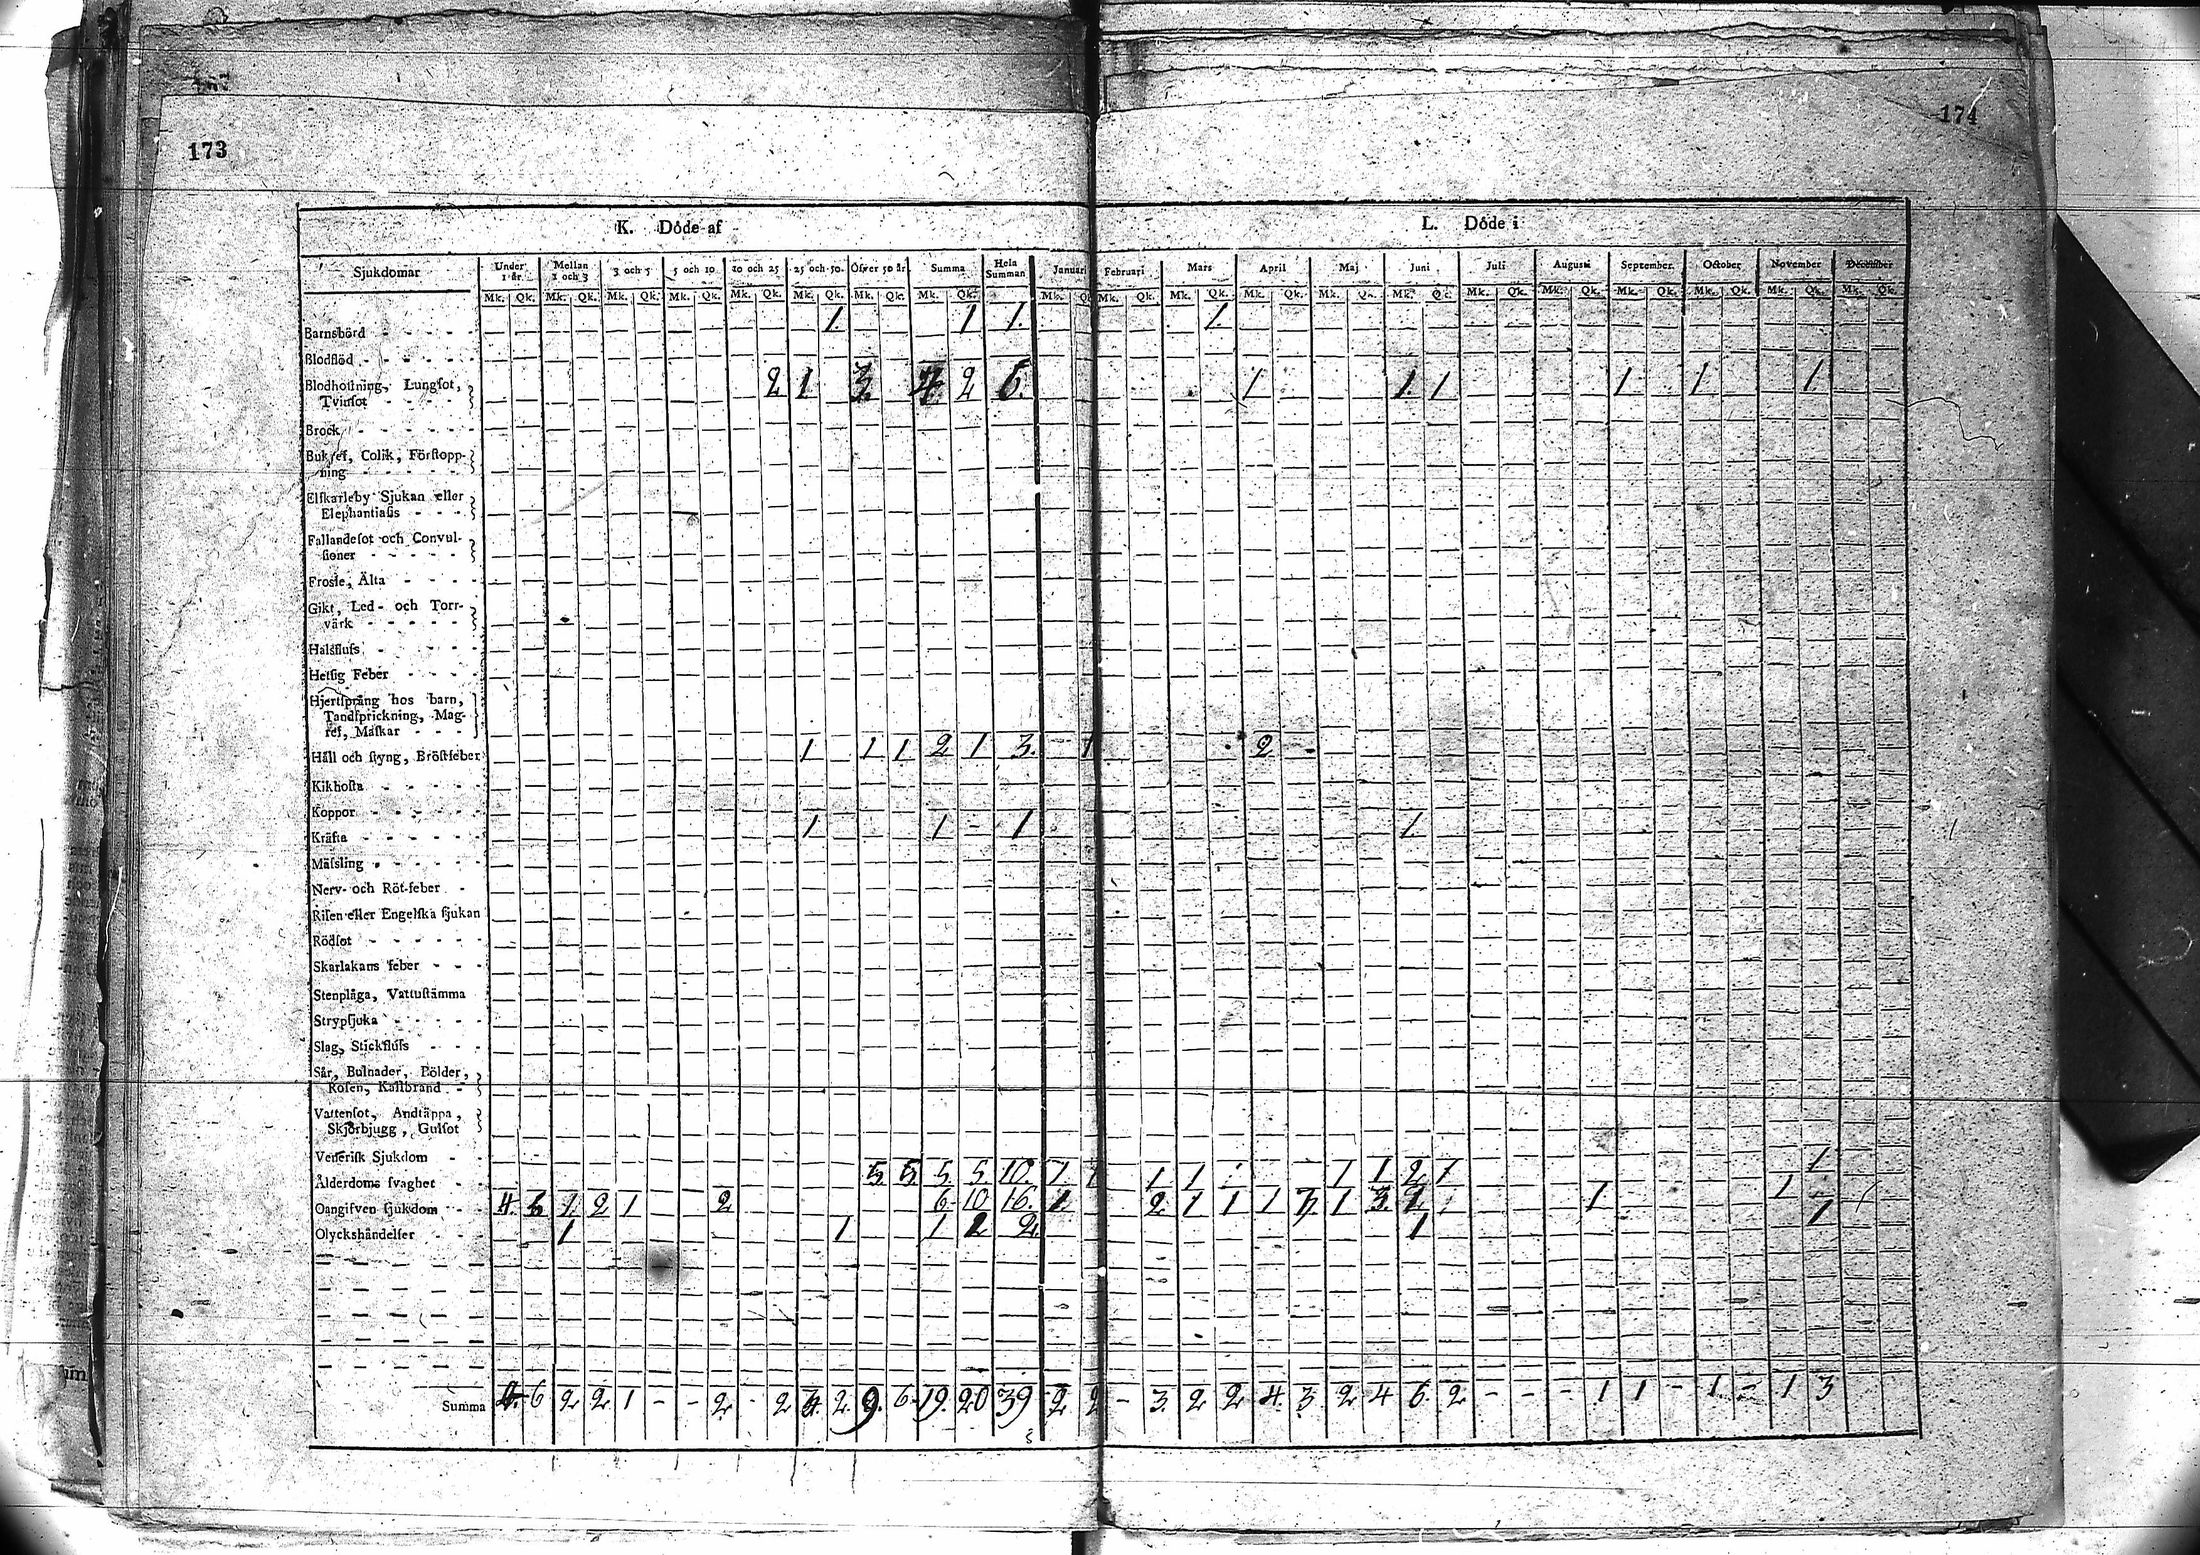 173
174
K. Döde af
L. Döde i
Sjukdomar Under 1 år. Mellan 1 och 3 3 och 5 5 och 10 10 och 25 25 och 50. Öfver 50 år. Summa Hela Summan Januari Februari Mars April Maj Juni Juli Augusti September. October November December
Mk. Qk. Mk. Qk. Mk. Qk. Mk. Qk. Mk. Qk. Mk. Qk. Mk. Qk. Mk. Qk. Mk. Qk. Mk. Qk. Mk. Qk. Mk. Qk. Mk. Qk. Mk. Qk. Mk. Qk. Mk. Qk. Mk. Qk. Mk. Qk. Mk. Qk. Mk. Qk.
Barnsbörd 1. 1 1. 1.
Blodflöd
Blodhostning, Lungſot,
Tvinſot 2 1 3. 4. 2 6. 1 1. 1 1 1 1
Brock
Bukref, Colik, Förſtopp-
ning
Elfkarleby Sjukan eller
Elephantiaſis
Fallandeſot och Convul-
ſioner
Frosſe, Älta
Gikt, Led- och Torr-
värk
Halsfluſs
Hetſig Feber
Hjertſprång hos barn,
Tandſprickning, Mag-
ref, Maſkar
Håll och ſtyng, Bröſtfeber 1 1 1 2 1 3. 1 2
Kikhoſta
Koppor
Kräfta 1 1 - 1 1.
Mäſsling
Nerv- och Röt-feber
Riſen eller Engelſka ſjukan
Rödſot
Skarlakans feber
Stenplåga, Vattuſtämma
Strypſjuka
Slag, Stickfluſs
Sår, Bulnader, Bölder,
Roſen, Kallbrand
Vattenſot, Andtäppa,
Skjörbjugg, Gulſot
Veneriſk Sjukdom
Ålderdoms ſvaghet 5. 5 5 5. 10. 1. 1 1 1 1 1 2 1 1
Oangifven ſjukdom 4. 6 1. 2 1 2 6 10 16. 1 2 1 1 1 3. 1 3. 1 1
Olyckshändelſer 1 1 1 2. 1 1
Summa 4. 6 2 2 1 - - 2 - 2 2. 9. 6 19. 20 39 2 2 - 3. 2 2 4. 3. 2 4 6. 2 - - - 1 1 - 1 - 1 3